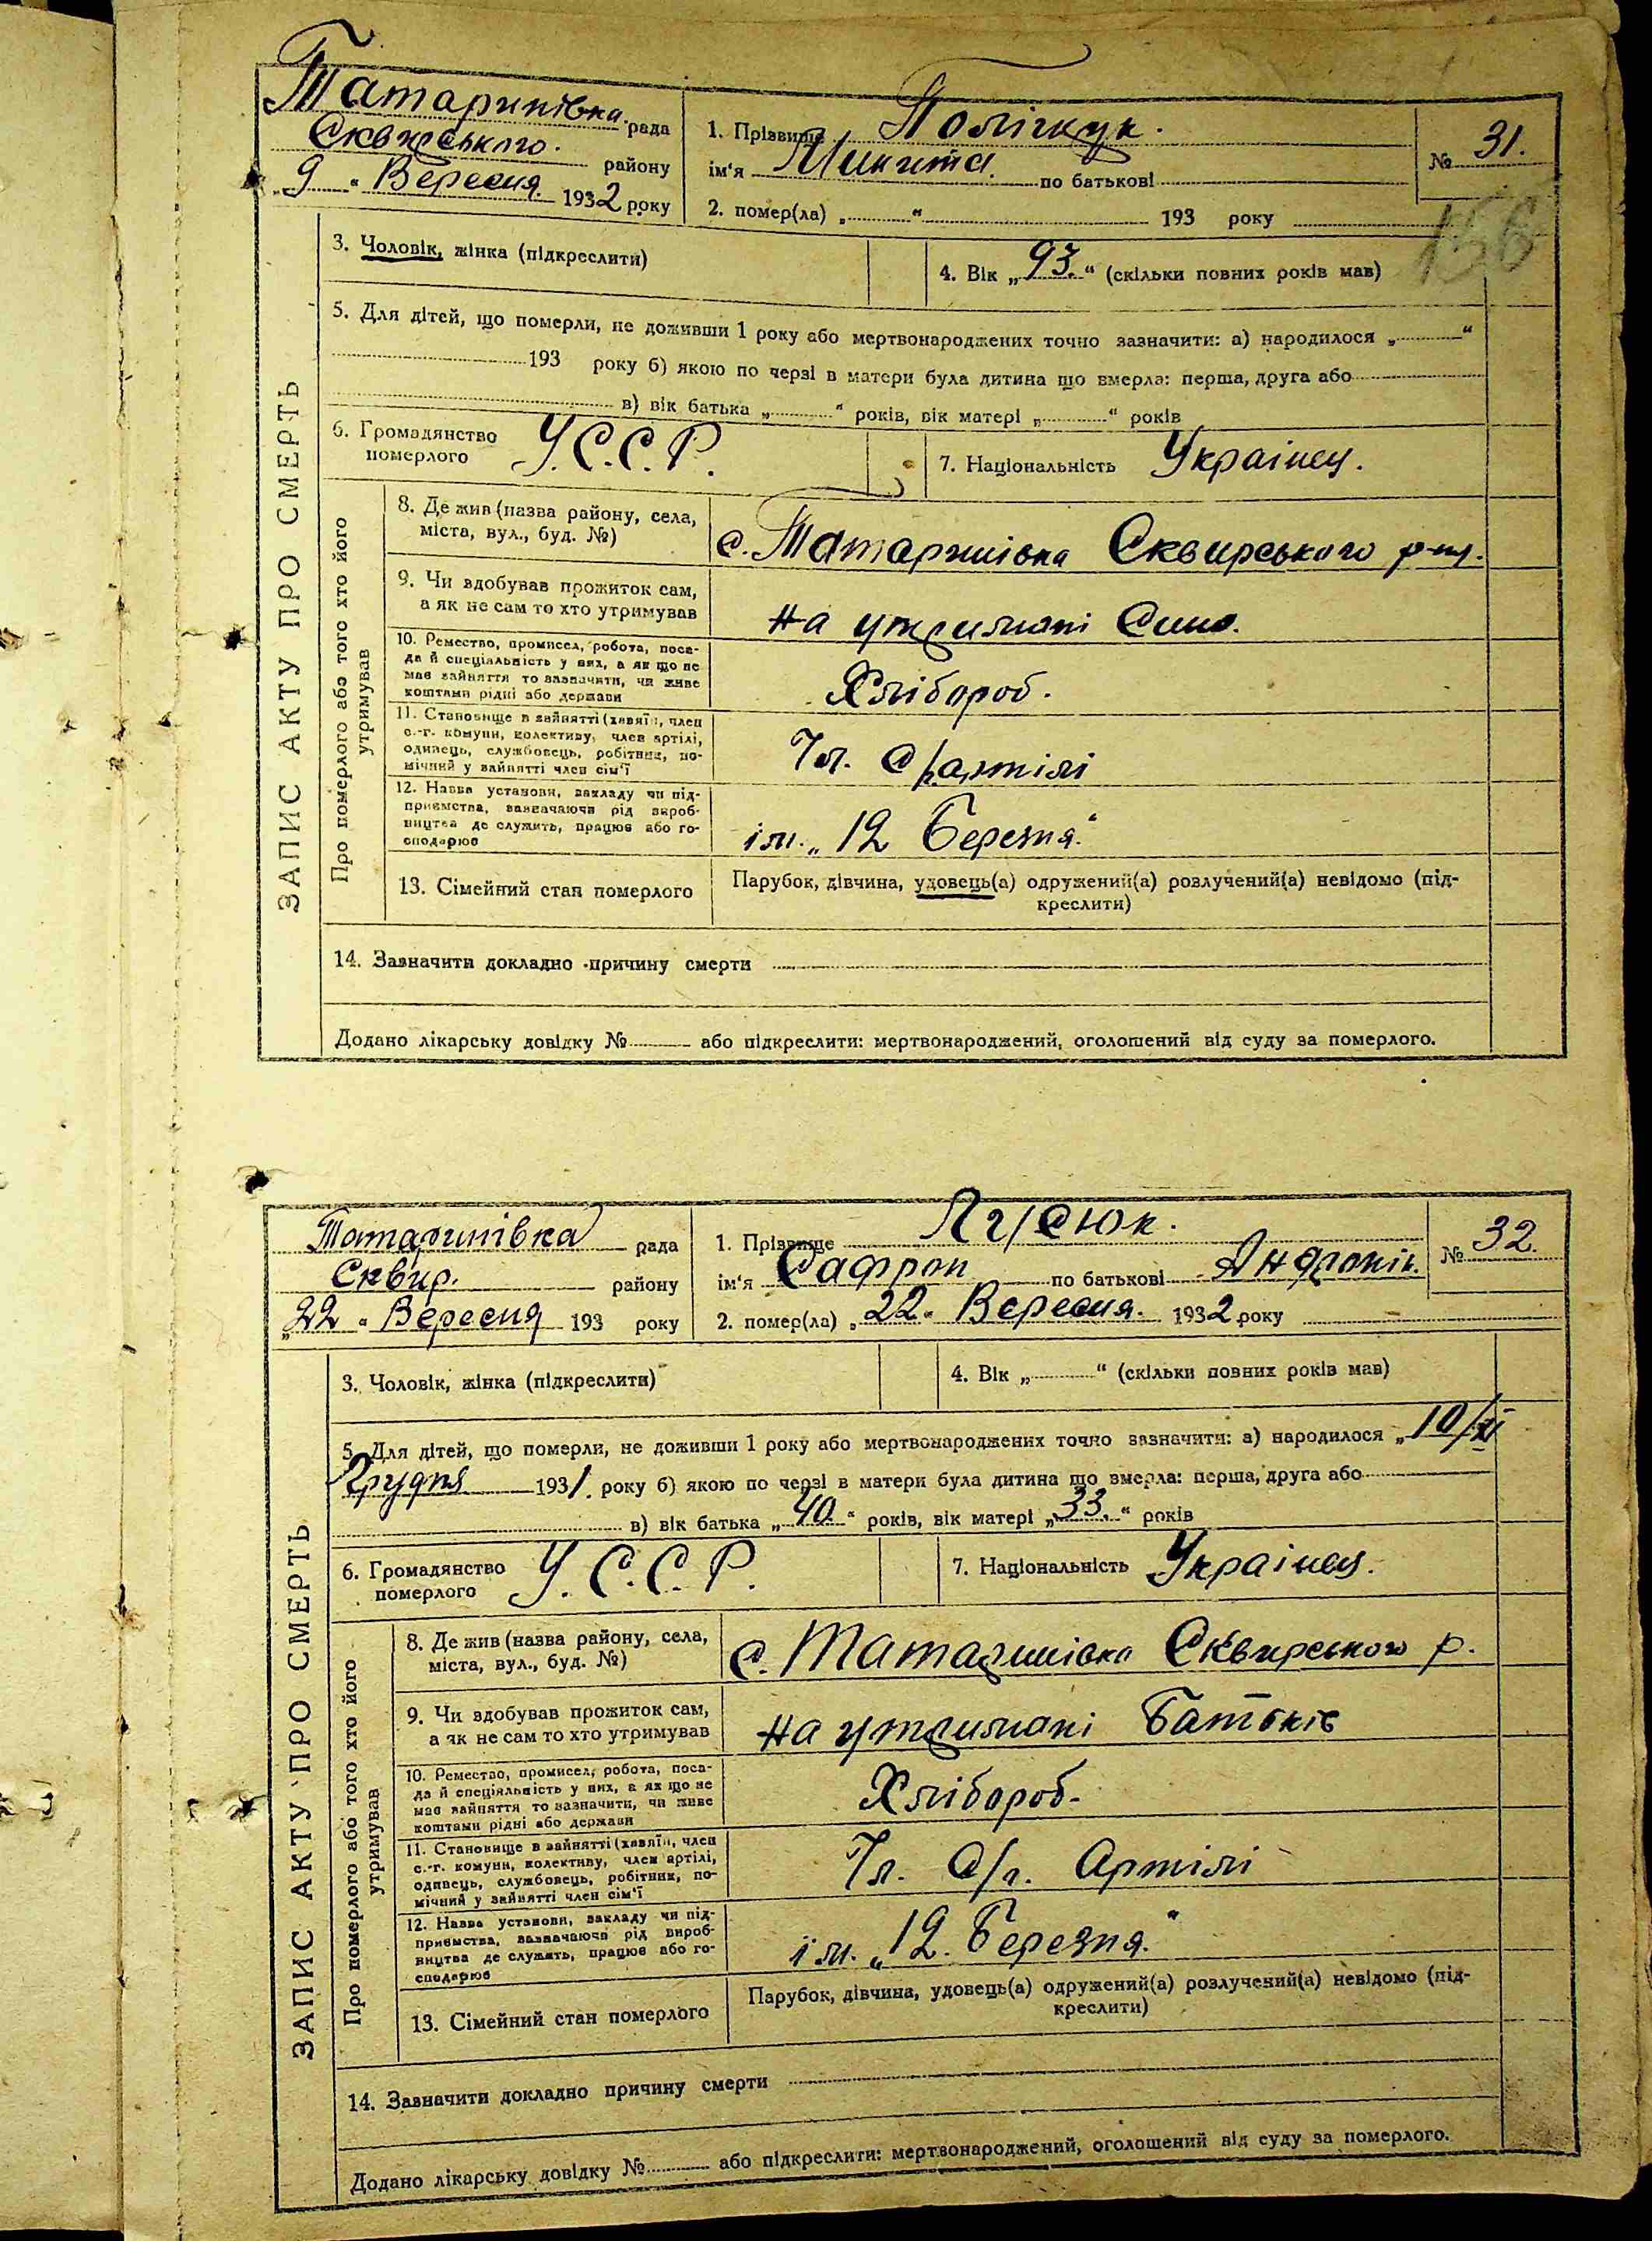 Татаринівка рада
Сквирського району
„9“ Вересня 1932 року
1. Прізвище Поліщук.
ім‘я Микита. по батькові
2. помер(ла) „ “ 193 року
№ 31.
156
ЗАПИС АКТУ ПРО СМЕРТЬ
3. Чоловік, жінка (підкреслити)
4. Вік „93.“ (скільки повних років мав)
5. Для дітей, що померли, не доживши 1 року або мертвонароджених точно зазначити: а) народилося „ “
193 року б) якою по черзі в матери була дитина що вмерла: перша, друга або
в) вік батька „ “ років, вік матері „ “ років
6. Громадянство
померлого
У.С.С.Р.
7. Національність Українец.
Про померлого або того хто його
утримував
8. Де жив (назва району, села,
міста, вул., буд. №)
с. Татаринівка Сквирського р-ну.
9. Чи здобував прожиток сам,
а як не сам то хто утримував
на утримані Сина.
10. Ремество, промисел, робота, поса-
да й спеціальність у них, а як що не
має зайняття то зазначити, чи живе
коштами рідні або держави
Хлібороб.
11. Становище в зайнятті (хазяїн, член
с.-г. комуни, колективу, член артілі,
одинець, службовець, робітник, по-
мічний у зайнятті член сім‘ї
Чл. С/г. артілі
12. Назва установи, закладу чи під-
приємства, зазначаючи рід вироб-
ництва де служить, працює або го-
сподарює
ім. „12 Березня“
13. Сімейний стан померлого
Парубок, дівчина, удовець(а) одружений(а) розлучений(а) невідомо (під-
креслити)
14. Зазначити докладно причину смерти
Додано лікарську довідку № або підкреслити: мертвонароджений, оголошений від суду за померлого.
Татаринівка рада
Сквир. району
„22“ Вересня 193 року
1. Прізвище
ім‘я Сафрон по батькові
2. помер(ла) „22“ Вересня. 1932 року
№ 32.
ЗАПИС АКТУ ПРО СМЕРТЬ
3. Чоловік, жінка (підкреслити)
4. Вік „ “ (скільки повних років мав)
5. Для дітей, що померли, не доживши 1 року або мертвонароджених точно зазначити: а) народилося „10/
Грудня 1931. року б) якою по черзі в матери була дитина що вмерла: перша, друга або
в) вік батька „40.“ років, вік матері „33.“ років
6. Громадянство
померлого
У.С.С.Р.
7. Національність Українец.
Про померлого або того хто його
утримував
8. Де жив (назва району, села,
міста, вул., буд. №)
с. Татаринівка Сквирського р.
9. Чи здобував прожиток сам,
а як не сам то хто утримував
на утримані Батьків
10. Ремество, промисел, робота, поса-
да й спеціяльність у них, а як що не
має зайняття то зазначити, чи живе
коштами рідні або держави
Хлібороб.
11. Становище в зайнятті (хазяїн, член
с.-г. комуни, колективу, член артілі,
одинець, службовець, робітник, по-
мічний у зайнятті член сім‘ї
Чл. С/г. Артілі
12. Назва установи, закладу чи під-
приємства, зазначаючи рід вироб-
ництва де служить, працює або го-
сподарює
ім. „12. Березня“
13. Сімейний стан померлого
Парубок, дівчина, удовець(а) одружений(а) розлучений(а) невідомо (під-
креслити)
14. Зазначити докладно причину смерти
Додано лікарську довідку № або підкреслити: мертвонароджений, оголошений від суду за померлого.